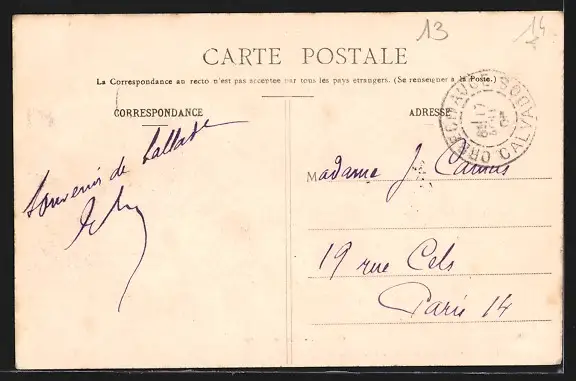 13
14
CARTE POSTALE
La Correspondance au recto n'est pas acceptée par tous les pays étrangers. (Se renseigner à la Poste.)
CORRESPONDANCE
ADRESSE
CALVADOS
Souvenir de
Madame J. Camus
19 rue Cels
Paris 14